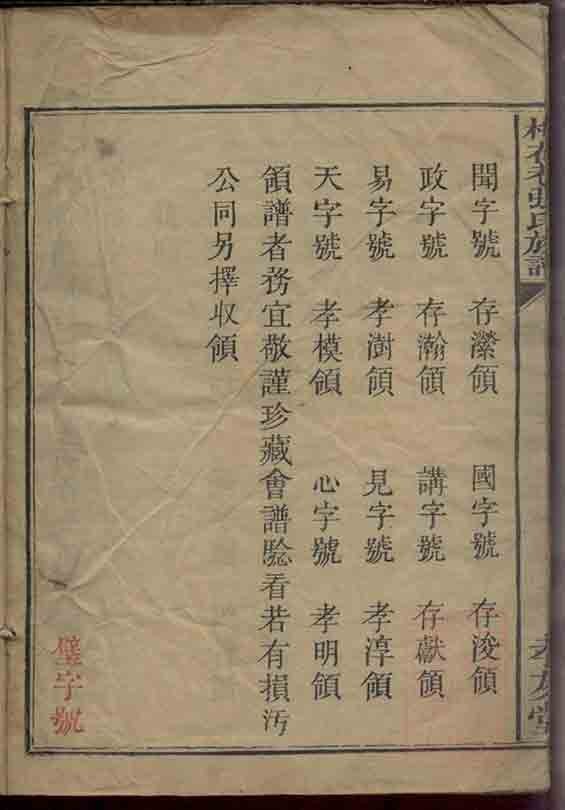 張氏族譜
孝友堂
聞字號 存濴領 國字號 存浚領
政字號 存瀚領 講字號 存獻領
易字號 孝澍領 見字號 孝淳領
天字號 孝模領 心字號 孝明領
領譜者務宜敬謹珍藏會譜騐看若有損汚
公同另擇收領
璧字號